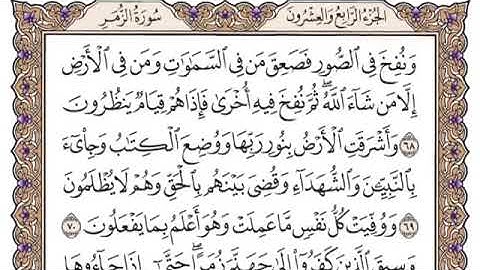 الجزء الرابع والعشرون
سورة الزمر
وَنُفِخَ فِي ٱلصُّورِ فَصَعِقَ مَن فِي ٱلسَّمَٰوَٰتِ وَمَن فِي ٱلْأَرْضِ
إِلَّا مَن شَآءَ ٱللَّهُ ۖ ثُمَّ نُفِخَ فِيهِ أُخْرَىٰ فَإِذَا هُمْ قِيَامٌ يَنظُرُونَ
٦٨ وَأَشْرَقَتِ ٱلْأَرْضُ بِنُورِ رَبِّهَا وَوُضِعَ ٱلْكِتَٰبُ وَجِا۟ىٓءَ
بِٱلنَّبِيِّـۧنَ وَٱلشُّهَدَآءِ وَقُضِيَ بَيْنَهُم بِٱلْحَقِّ وَهُمْ لَا يُظْلَمُونَ
٦٩ وَوُفِّيَتْ كُلُّ نَفْسٍ مَّا عَمِلَتْ وَهُوَ أَعْلَمُ بِمَا يَفْعَلُونَ ٧٠
وَسِيقَ ٱلَّذِينَ كَفَرُوٓا۟ إِلَىٰ جَهَنَّمَ زُمَرًا ۖ حَتَّىٰٓ إِذَا جَآءُوهَا